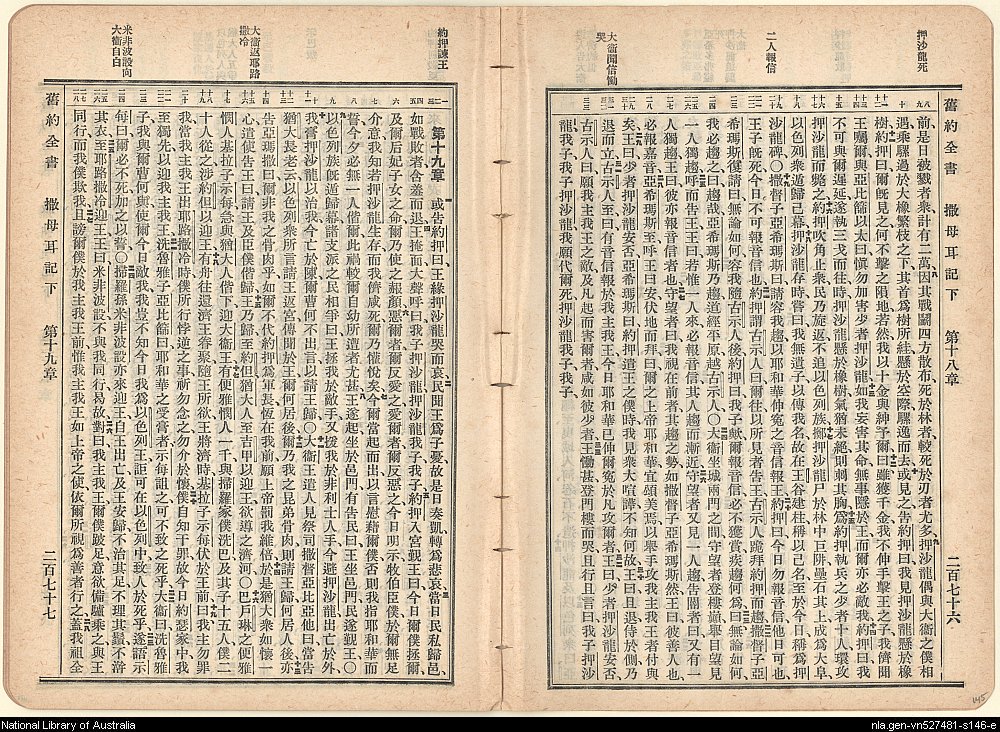 押沙龍死
二人報信
大衛聞信慟
哭
舊約全書 撒母耳記下 第十八章 二百七十六
前是日被戮者衆計有二萬因其戰鬬四方散布死於林者較死於刃者尤多押沙龍偶與大衛之僕相
遇乘騾過於大橡繁枝之下其首爲樹所絓懸於空際騾逸而去或見之告約押曰我見押沙龍懸於橡
樹約押曰爾旣見之何不擊之隕地若然我以十金與紳予爾曰雖獲千金我不伸手擊王之子我儕聞
王囑爾與亞比篩以太曰愼勿加害少者押沙龍如我妄害其命無事隱於王而爾亦必敵我約押曰我
不可與爾遲延遂執三戈而往時押沙龍懸於橡樹氣猶未絕則刺其胸爲約押執兵之少者十人環攻
押沙龍而斃之約押吹角止衆民乃旋返不追以色列族擲押沙龍尸於林中巨阱壘石其上成爲大阜
以色列衆遁歸己幕押沙龍存時嘗曰我無遺子以傳我名故在王谷建柱稱以己名至於今日稱爲押
沙龍碑〇撒督子亞希瑪斯曰請容我趨以耶和華伸寃之音信報王約押曰今日勿報音信他日可也
王子旣死今日不可報音信也約押謂古示人曰爾往以所見者告王古示人跪拜約押而趨撒督子亞
希瑪斯復請曰無論如何容我隨古示人後約押曰我子歟爾報音信必不獲賞奚趨何爲曰無論如何
我必趨之曰趨哉亞希瑪斯乃趨道經平原越古示人〇大衛坐城兩門之間守望者登樓巔舉目望見
一人獨趨呼而告王王曰若惟一人來必報音信其人趨而漸近守望者又見一人趨告閽者曰又有一
人獨趨王曰彼亦報音信者也守望者曰我視在前者其趨之勢如撒督子亞希瑪斯然王曰彼善人也
必報嘉音亞希瑪斯至呼王曰安伏地而拜曰爾之上帝耶和華宜頌美焉以舉手攻我主我王者付與
矣王曰少者押沙龍安否亞希瑪斯曰約押遣王之僕時我見衆大喧譁不知何故王曰且退侍於側乃
退而立古示人至曰有音信報於我主我王今日耶和華已伸爾寃於凡攻爾者王曰少者押沙龍安否
古示人曰願我主我王之敵及凡起而害爾者咸如彼少者王慟甚登門樓而哭且行且言曰我子押沙
龍我子我子押沙龍我願代爾死押沙龍我子我子
約押諫王
大衛返耶路
撒冷
米非波設向
大衛自白
第十九章 或告約押曰王緣押沙龍哭而哀民聞王爲子憂故是日奏凱轉爲悲哀當日民私歸邑
如戰敗者含羞而退王掩面大聲呼曰我子押沙龍押沙龍我子我子約押入宮覲王曰今日爾僕拯爾
及爾后妃子女之命爾乃使之赧顏惡爾者爾反愛之愛爾者爾反惡之今日明示牧伯臣僕於爾無足
介意我知若押沙龍生存而我儕咸死爾乃懽悅矣今爾當起而出以言慰藉爾僕否則我指耶和華而
誓今夕必無一人偕爾此禍較爾自幼所遭者尤甚王遂起坐於邑門有告民曰王坐邑門民遂覲王〇
以色列族旣遁歸幕諸支派之民相爭曰王拯我於敵手又援我於非利士人手今避押沙龍出亡於外
我膏押沙龍以治我今亡於陳爾曹何不出言以請王歸〇大衛王遣人見祭司撒督亞比亞他曰當告
猶大長老云以色列衆所言請王返宮傳聞於王爾何居後爾乃我之昆弟骨肉則請王歸何居人後亦
告亞瑪撒曰爾非我之骨肉乎如爾不代約押爲軍長恆在我前願上帝罰我維倍於是猶大衆如懷一
心遣使告王曰請王及臣僕偕歸王乃歸至約但猶大人至吉甲以迎王欲導之濟河〇巴戶琳之便雅
憫人基拉子示每急與猶大人偕下迎大衛王有便雅憫人一千與掃羅家僕洗巴及其子十五人僕二
十人從之涉約但以迎王有舟往還濟王眷聚隨王所欲王將濟時基拉子示每伏於王前曰我主勿罪
我當我主我王出耶路撒冷時僕所行悖逆之事祈勿念之勿介於懷僕自知干罪故今日約瑟家中我
至獨先以迎我主我王洗魯雅子亞比篩曰耶和華之受膏者示每詛之可不致之死乎大衛曰洗魯雅
子我與爾曹何與使爾今日敵我我豈不知今日我爲以色列王詎可在以色列中致人於死乎遂語示
每曰爾必不死加之以誓〇掃羅孫米非波設亦來迎王自王出亡及王安歸不治其足不理其鬚不澣
其衣王至耶路撒冷迎王王曰米非波設不與我同行曷故對曰我主我王爾僕跛足意欲備驢乘之與王
同行而我僕欺我且謗爾僕於我主我王前惟我主我王如上帝之使依爾所視爲善者行之蓋我祖全
舊約全書 撒母耳記下 第十九章 二百七十七
145
National Library of Australia
nla.gen-vn527481-s146-e